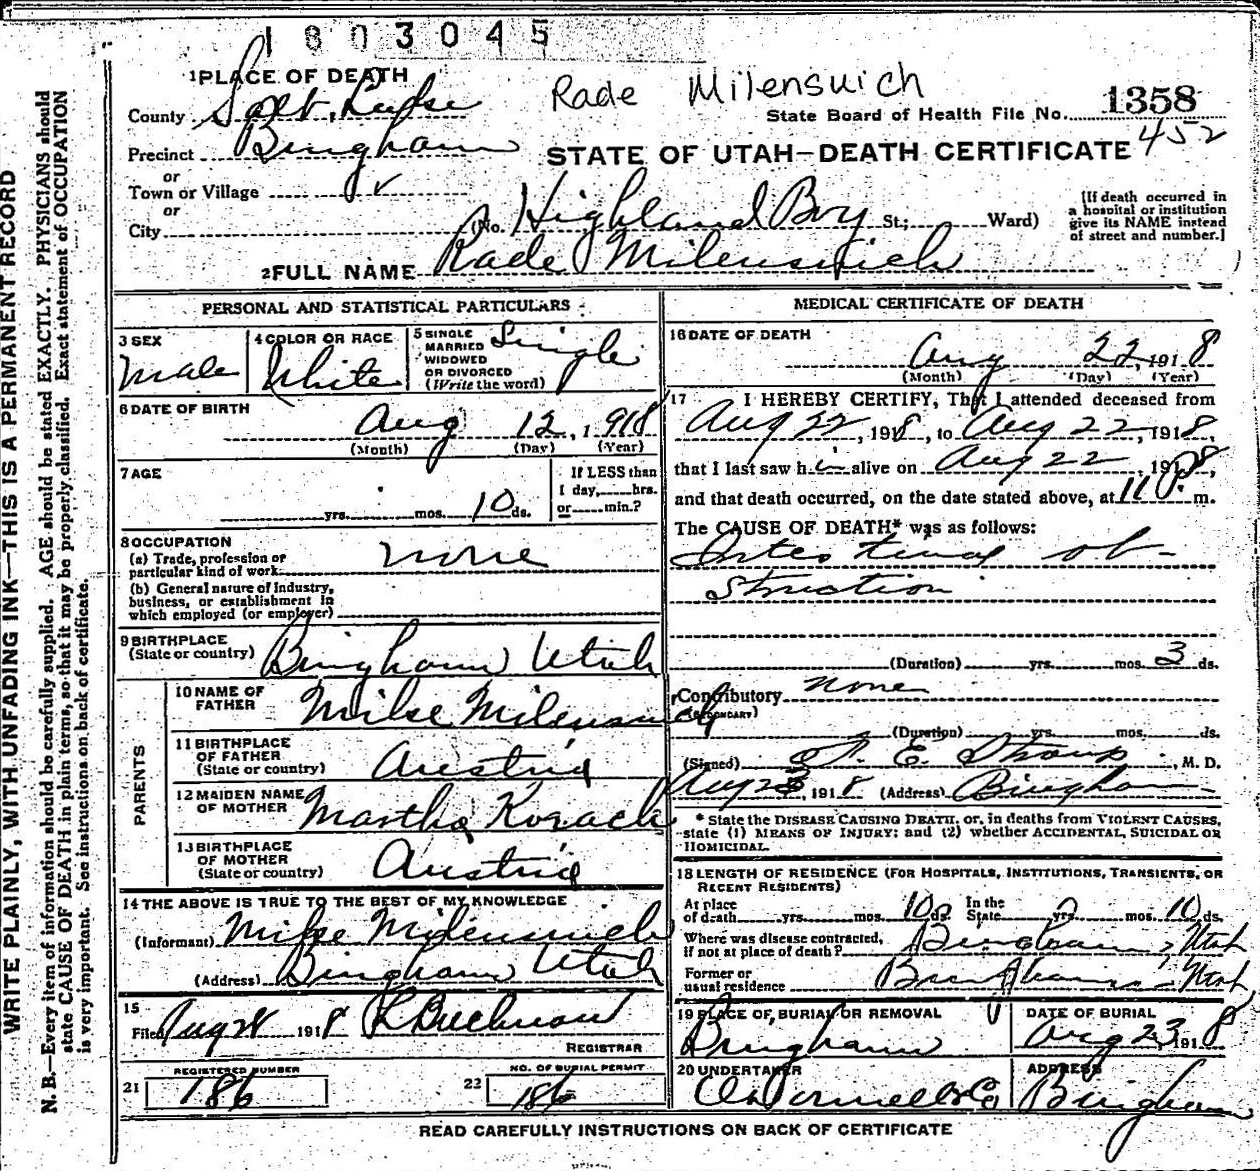 1803045
1 PLACE OF DEATH
Rade Milensuich
County Salt Lake
State Board of Health File No. 1358
Precinct Bingham
452
STATE OF UTAH—DEATH CERTIFICATE
or
Town or Village
or
City
(No. Highland Boy St.; Ward)
[If death occurred in
a hospital or institution
give its NAME instead
of street and number.]
2 FULL NAME Rade Milensuich
PERSONAL AND STATISTICAL PARTICULARS
3 SEX
Male
4 COLOR OR RACE
White
5 SINGLE
MARRIED
WIDOWED
OR DIVORCED
(Write the word)
Single
6 DATE OF BIRTH
Aug 12, 1918
(Month) (Day) (Year)
7 AGE
yrs. mos. 10 ds.
If LESS than
1 day, hrs.
or min.?
8 OCCUPATION
(a) Trade, profession or
particular kind of work none
(b) General nature of industry,
business, or establishment in
which employed (or employer)
9 BIRTHPLACE
(State or country) Bingham Utah
PARENTS
10 NAME OF
FATHER Milse Milensuich
11 BIRTHPLACE
OF FATHER
(State or country) Austria
12 MAIDEN NAME
OF MOTHER Martha Korach
13 BIRTHPLACE
OF MOTHER
(State or country) Austria
14 THE ABOVE IS TRUE TO THE BEST OF MY KNOWLEDGE
(Informant) Milse Milensuich
(Address) Bingham Utah
15
Filed Aug 1918
REGISTRAR
REGISTERED NUMBER
21 186
NO. OF BURIAL PERMIT
22 186
MEDICAL CERTIFICATE OF DEATH
16 DATE OF DEATH
Aug 22, 1918
(Month) (Day) (Year)
17 I HEREBY CERTIFY, That I attended deceased from
Aug 22, 1918, to Aug 22, 1918,
that I last saw him alive on Aug 22, 1918,
and that death occurred, on the date stated above, at 11 P. m.
The CAUSE OF DEATH* was as follows:
Intestinal ob-
struction
(Duration) yrs. mos. 3 ds.
Contributory none
(SECONDARY)
(Duration) yrs. mos. ds.
(Signed) E. , M. D.
Aug 23, 1918 (Address) Bingham
* State the DISEASE CAUSING DEATH, or, in deaths from VIOLENT CAUSES,
state (1) MEANS OF INJURY; and (2) whether ACCIDENTAL, SUICIDAL OR
HOMICIDAL.
18 LENGTH OF RESIDENCE (FOR HOSPITALS, INSTITUTIONS, TRANSIENTS, OR
RECENT RESIDENTS)
At place
of death yrs. mos. 10 ds.
In the
State mos. 10 ds.
Where was disease contracted,
if not at place of death? Bingham, Utah
Former or
usual residence Bingham, Utah
19 PLACE OF BURIAL OR REMOVAL
Bingham
DATE OF BURIAL
Aug 23, 1918
20 UNDERTAKER
O'Donnell & Co
ADDRESS
Bingham
READ CAREFULLY INSTRUCTIONS ON BACK OF CERTIFICATE
WRITE PLAINLY, WITH UNFADING INK—THIS IS A PERMANENT RECORD
N. B.—Every item of information should be carefully supplied. AGE should be stated EXACTLY. PHYSICIANS should
state CAUSE OF DEATH in plain terms, so that it may be properly classified. Exact statement of OCCUPATION
is very important. See instructions on back of certificate.